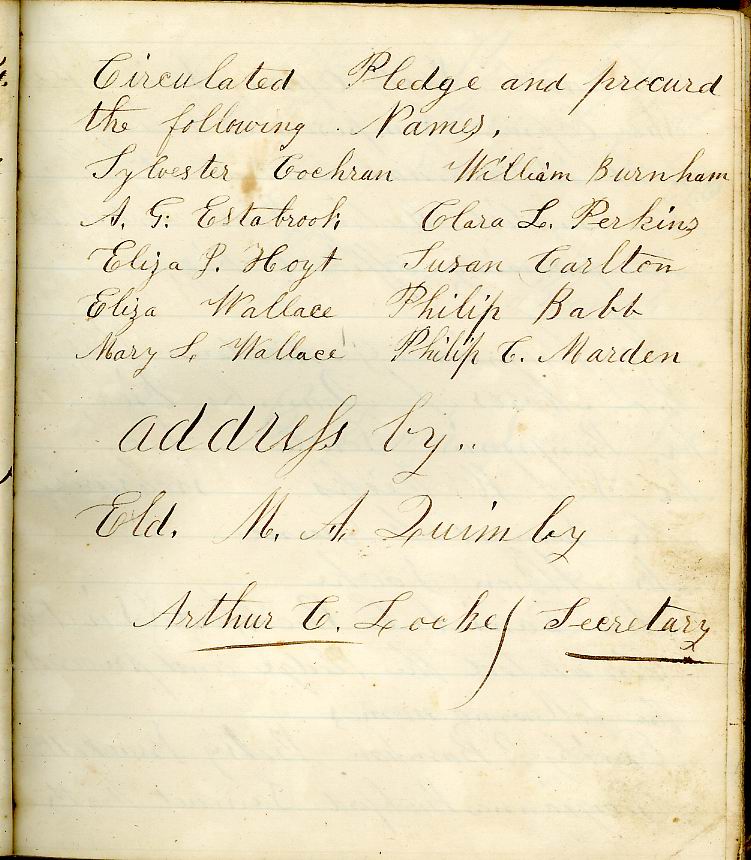 Circulated Pledge and procurd
the following Names,
Sylvester Cochran William Burnham
A. G. Estabrook Clara L. Perkins
Eliza P. Hoyt Susan Carlton
Eliza Wallace Philip Babb
Mary S. Wallace Philip C. Marden
address by..
Eld. M. A. Quimby
Arthur C. Locke Secretary